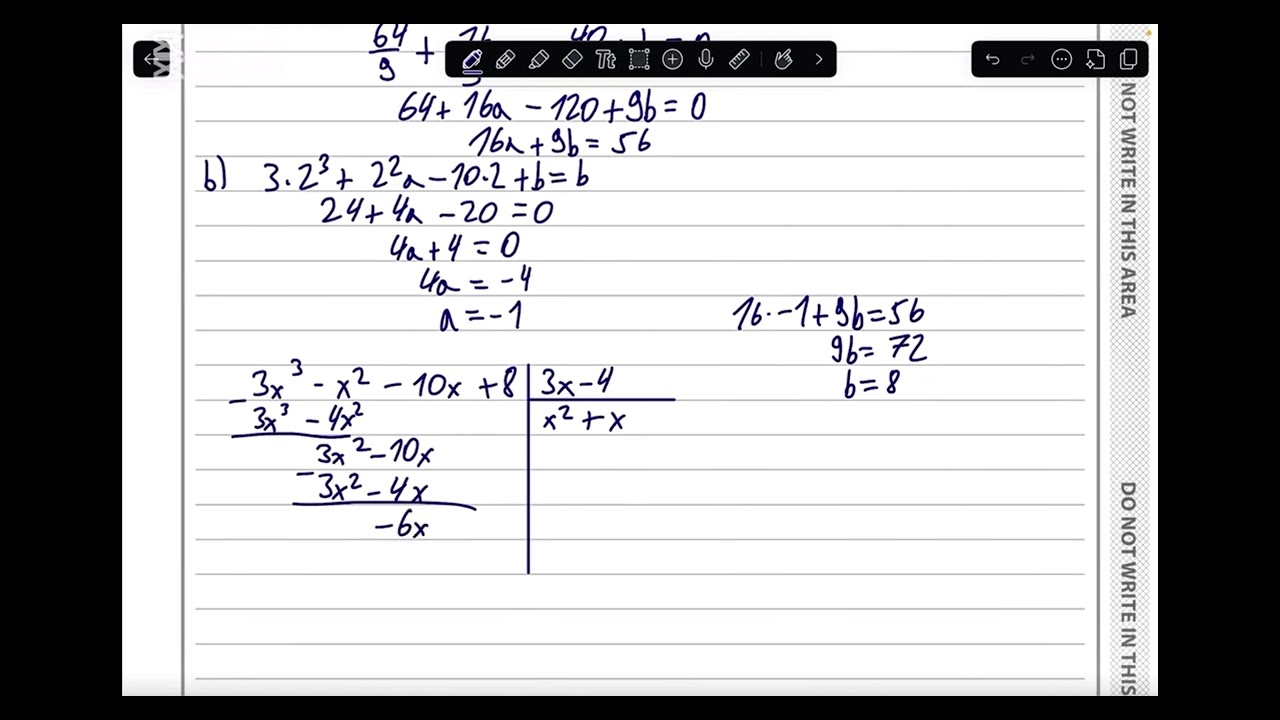 64/9 +
64 + 16a - 120 + 9b = 0
16a + 9b = 56
b) 3·2³ + 2²a - 10·2 + b = b
24 + 4a - 20 = 0
4a + 4 = 0
4a = -4
a = -1
16·-1 + 9b = 56
9b = 72
b = 8
3x³ - x² - 10x + 8 | 3x - 4
- 3x³ - 4x² | x² + x
3x² - 10x
- 3x² - 4x
-6x
NOT WRITE IN THIS AREA
DO NOT WRITE IN THIS
Tt